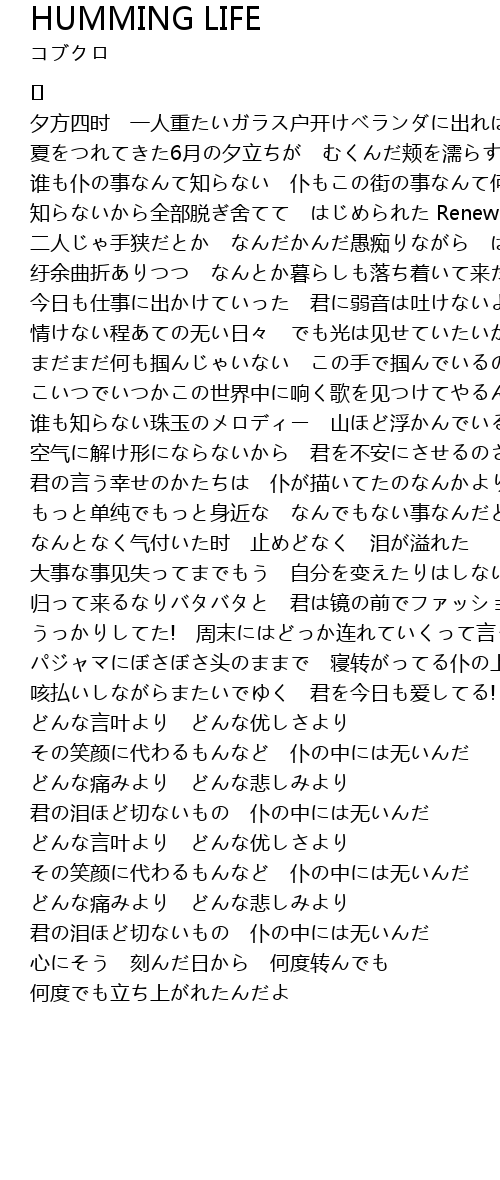 HUMMING LIFE
コブクロ
夕方四时　一人重たいガラス户开けベランダに出れ
夏をつれてきた6月の夕立ちが　むくんだ颊を濡らす
谁も仆の事なんて知らない　仆もこの街の事なんて
知らないから全部脱ぎ舍てて　はじめられた Renew
二人じゃ手狭だとか　なんだかんだ愚痴りながら
纡余曲折ありつつ　なんとか暮らしも落ち着いて来
今日も仕事に出かけていった　君に弱音は吐けない
情けない程あての无い日々　でも光は见せていたい
まだまだ何も掴んじゃいない　この手で掴んでいる
こいつでいつかこの世界中に响く歌を见つけてやる
谁も知らない珠玉のメロディー　山ほど浮かんでい
空气に解け形にならないから　君を不安にさせるの
君の言う幸せのかたちは　仆が描いてたのなんかよ
もっと单纯でもっと身近な　なんでもない事なんだ
なんとなく气付いた时　止めどなく　泪が溢れた
大事な事见失ってまでもう　自分を变えたりはしな
归って来るなりバタバタと　君は镜の前でファッショ
うっかりしてた!　周末にはどっか连れていくって言
パジャマにぼさぼさ头のままで　寝转がってる仆の
咳払いしながらまたいでゆく　君を今日も爱してる!
どんな言叶より　どんな优しさより
その笑颜に代わるもんなど　仆の中には无いんだ
どんな痛みより　どんな悲しみより
君の泪ほど切ないもの　仆の中には无いんだ
どんな言叶より　どんな优しさより
その笑颜に代わるもんなど　仆の中には无いんだ
どんな痛みより　どんな悲しみより
君の泪ほど切ないもの　仆の中には无いんだ
心にそう　刻んだ日から　何度转んでも
何度でも立ち上がれたんだよ